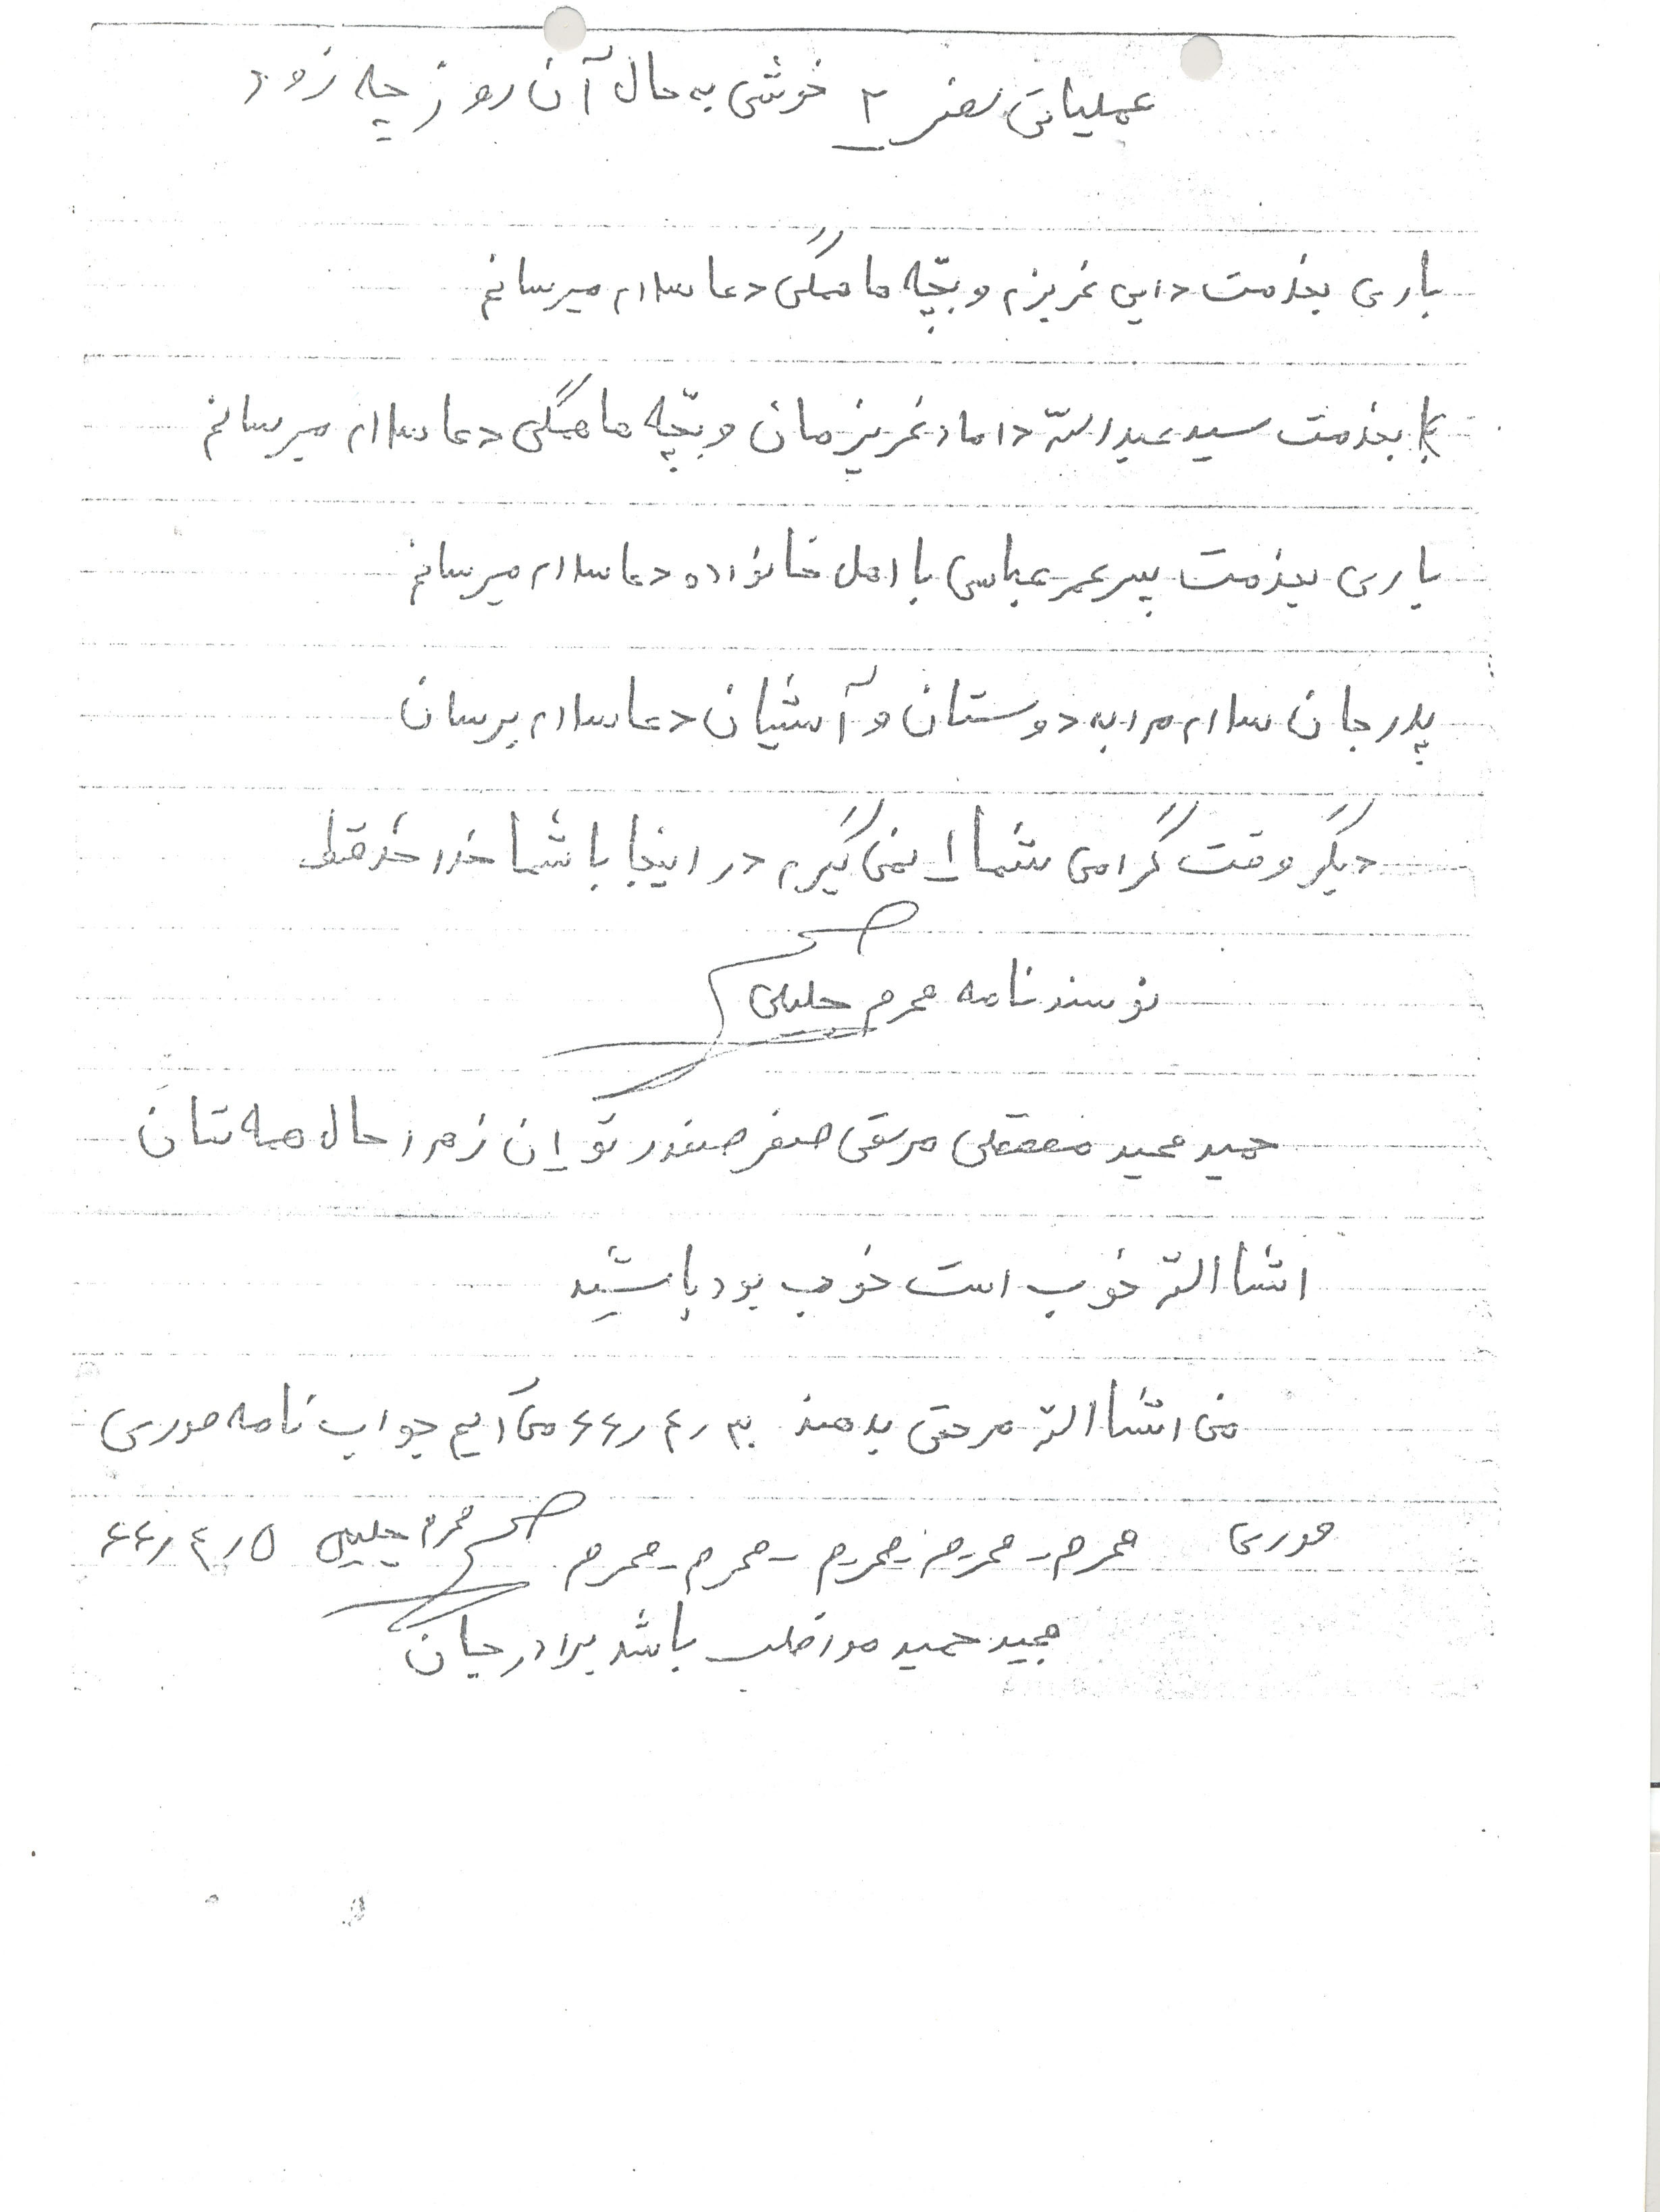 عملیاتی صفر ۲ خوشی به حال آن روز چه زود
باری بخذمت دایی عزیزم و بچّه ها همگی دعا سلام میرسانم
بخذمت سید عبدالله داماد عزیزمان و بچّه ها همگی دعا سلام میرسانم
باری بخذمت پسر عمر عباسی با اهل خانواده دعا سلام میرسانم
پدر جان سلام مرا به دوستان و آشیان دعا سلام برسان
دیگر وقت گرامی شما را نمی گیرم در اینجا با شما خدا حذقظ
نوسند نامه محرم جلیلی
حمید مجید مرتقی صفر صفدر تو زهرا حال همه تتان
انشا الله خوب است خوب بود باشید
من انشا الله مرخقی بدهند ۳۰ ر ۴ ر ۶۶ می آیم جواب نامه فوری
فوری محرم - محرم - محرم - محرم - محرم محرم جلیلی ۵ ر ۴ ر ۶۶
مجید حمید مواظب باشد برادر جان